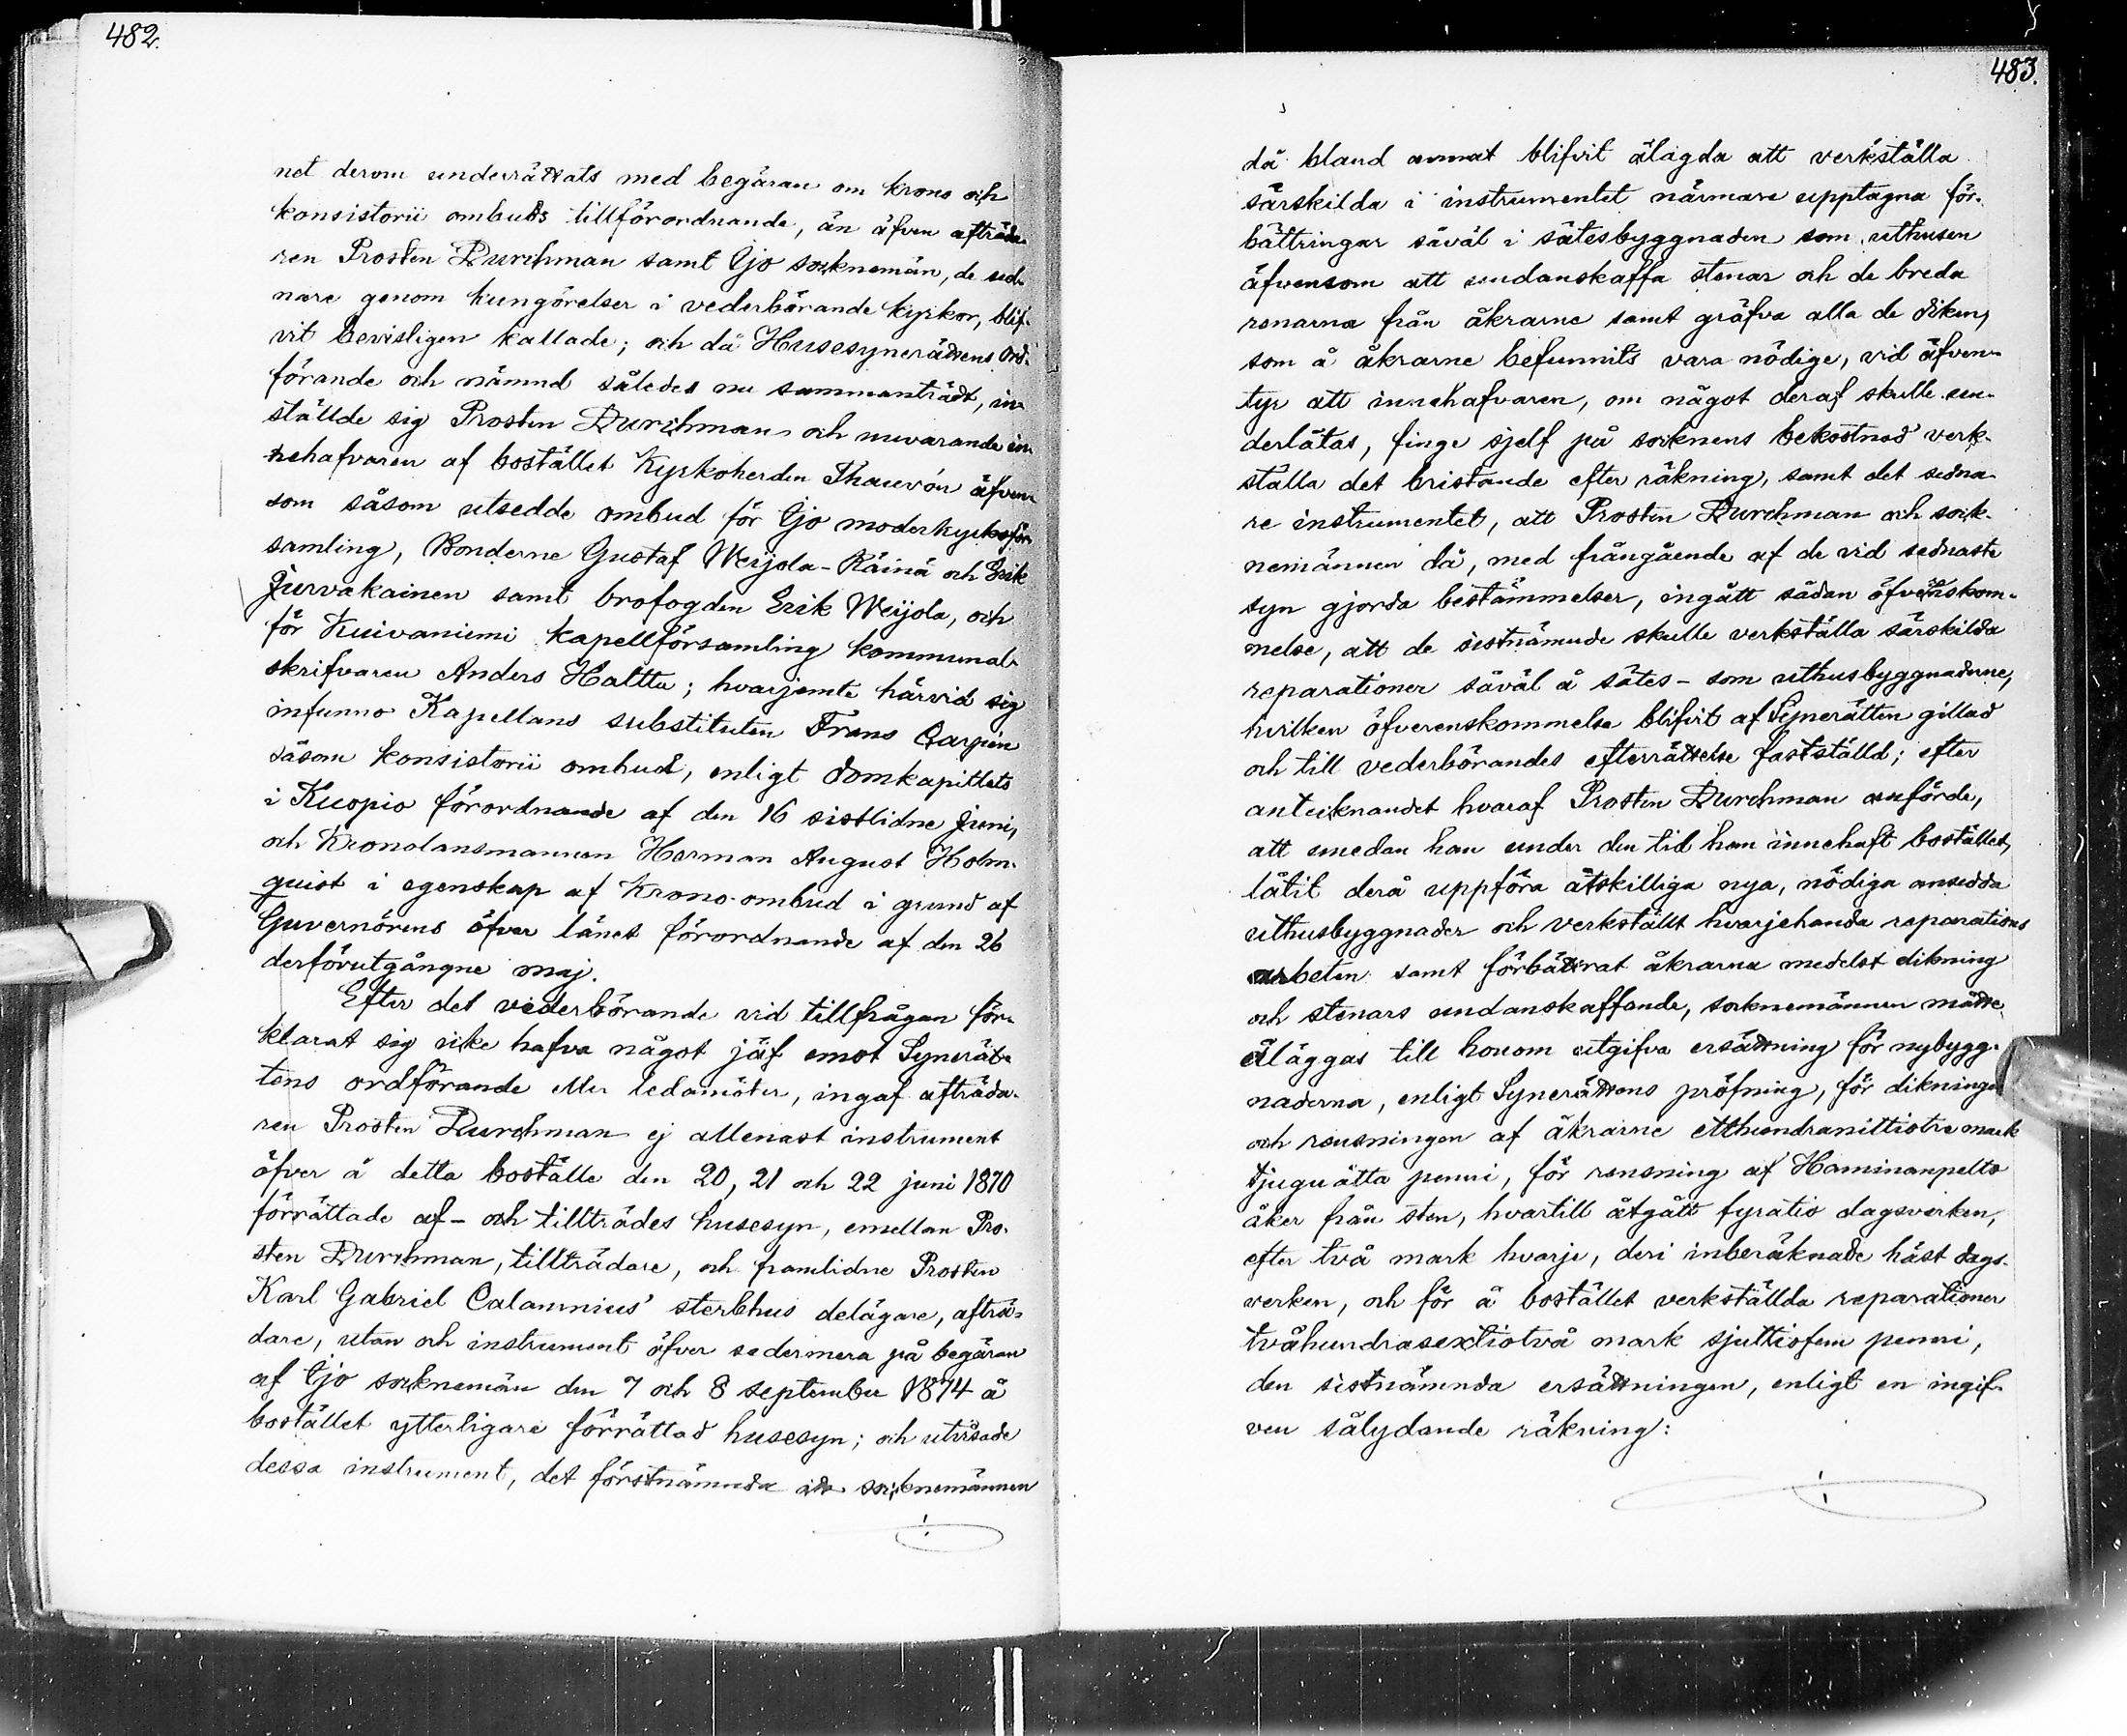 482.
net derom underrättats med begäran om krono och
konsistorii ombuds tillförordnande, än äfven afträda-
ren Prosten Durchman samt Ijo socknemän, de sed-
nare genom kungörelser i vederbörande kyrkor, blif-
vit bevisligen kallade; och då Husesynerättens Ord-
förande och nämnd således nu sammanträdt, in-
ställde sig Prosten Durchman och nuvarande in-
nehafvaren af bostället Kyrkoherden Thauvón äfven-
som såsom utsedde ombud för Ijo moderkyrkoför-
samling, Bonderne Gustaf Weijola-Räinä och Erik
Jurvakainen samt brofogden Erik Weijola, och
för Kuivaniemi kapellförsamling kommunal-
skrifvaren Anders Halttu; hvarjemte härvid sig
infunno Kapellans substituten Frans Carpén
såsom konsistorii ombud, enligt domkapitlets
i Kuopio förordnande af den 16 sistlidne juni,
och Kronolänsmannen Herman August Holm-
quist i egenskap af Krono-ombud i grund af
Guvernörens öfver länet förordnande af den 26
derförutgångne maj.
Efter det vederbörande vid tillfrågan för-
klarat sig icke hafva något jäf emot Synerät-
tens ordförande eller ledamöter, ingaf afträda-
ren Prosten Durchman ej allenast instrument
öfver å detta boställe den 20, 21 och 22 juni 1870
förrättade af- och tillträdes husesyn, emellan Pro-
sten Durchman, tillträdare, och framlidne Prosten
Karl Gabriel Calamnius' sterbhus delägare, afträ-
dare, utan och instrument öfver sedermera på begäran
af Ijo socknemän den 7 och 8 september 1874 å
bostället ytterligare förrättad husesyn; och utvisade
dessa instrument, det förstnämnda att socknemännen
483.
då bland annat blifvit ålagda att verkställa
särskilda i instrumentet närmare upptagna för-
bättringar såväl i sätesbyggnaden som uthusen
äfvensom att undanskaffa stenar och de breda
renarna från åkrarne samt gräfva alla de diken,
som å åkrarne befunnits vara nödige, vid äfven-
tyr att innehafvaren, om något deraf skulle un-
derlåtas, finge sjelf på socknens bekostnad verk-
ställa det bristande efter räkning, samt det sedna-
re instrumentet, att Prosten Durchman och sock-
nemännen då, med frångående af de vid sednaste
syn gjorda bestämmelser, ingått sådan öfverenskom-
melse, att de sistnämnde skulle verkställa särskilda
reparationer såväl å sätes- som uthusbyggnaderne,
hvilken öfverenskommelse blifvit af Synerätten gillad
och till vederbörandes efterrättelse fastställd; efter
antecknandet hvaraf Prosten Durchman anförde,
att emedan han under den tid han innehaft bostället,
låtit derå uppföra åtskilliga nya, nödiga ansedda
uthusbyggnader och verkställt hvarjehanda reparations
arbeten samt förbättrat åkrarna medelst dikning
och stenars undanskaffande, socknemännen måtte
åläggas till honom utgifva ersättning för nybygg-
naderna, enligt Synerättens pröfning, för dikningen
och rensningen af åkrarne etthundranittiotre mark
tjuguåtta penni, för rensning af Haminanpelto
åker från sten, hvartill åtgått fyratio dagsverken,
efter två mark hvarje, deri inberäknade häst dags-
verken, och för å bostället verkställda reparationer
tvåhundrasextiotvå mark sjuttiofem penni,
den sistnämnda ersättningen, enligt en ingif-
ven sålydande räkning: